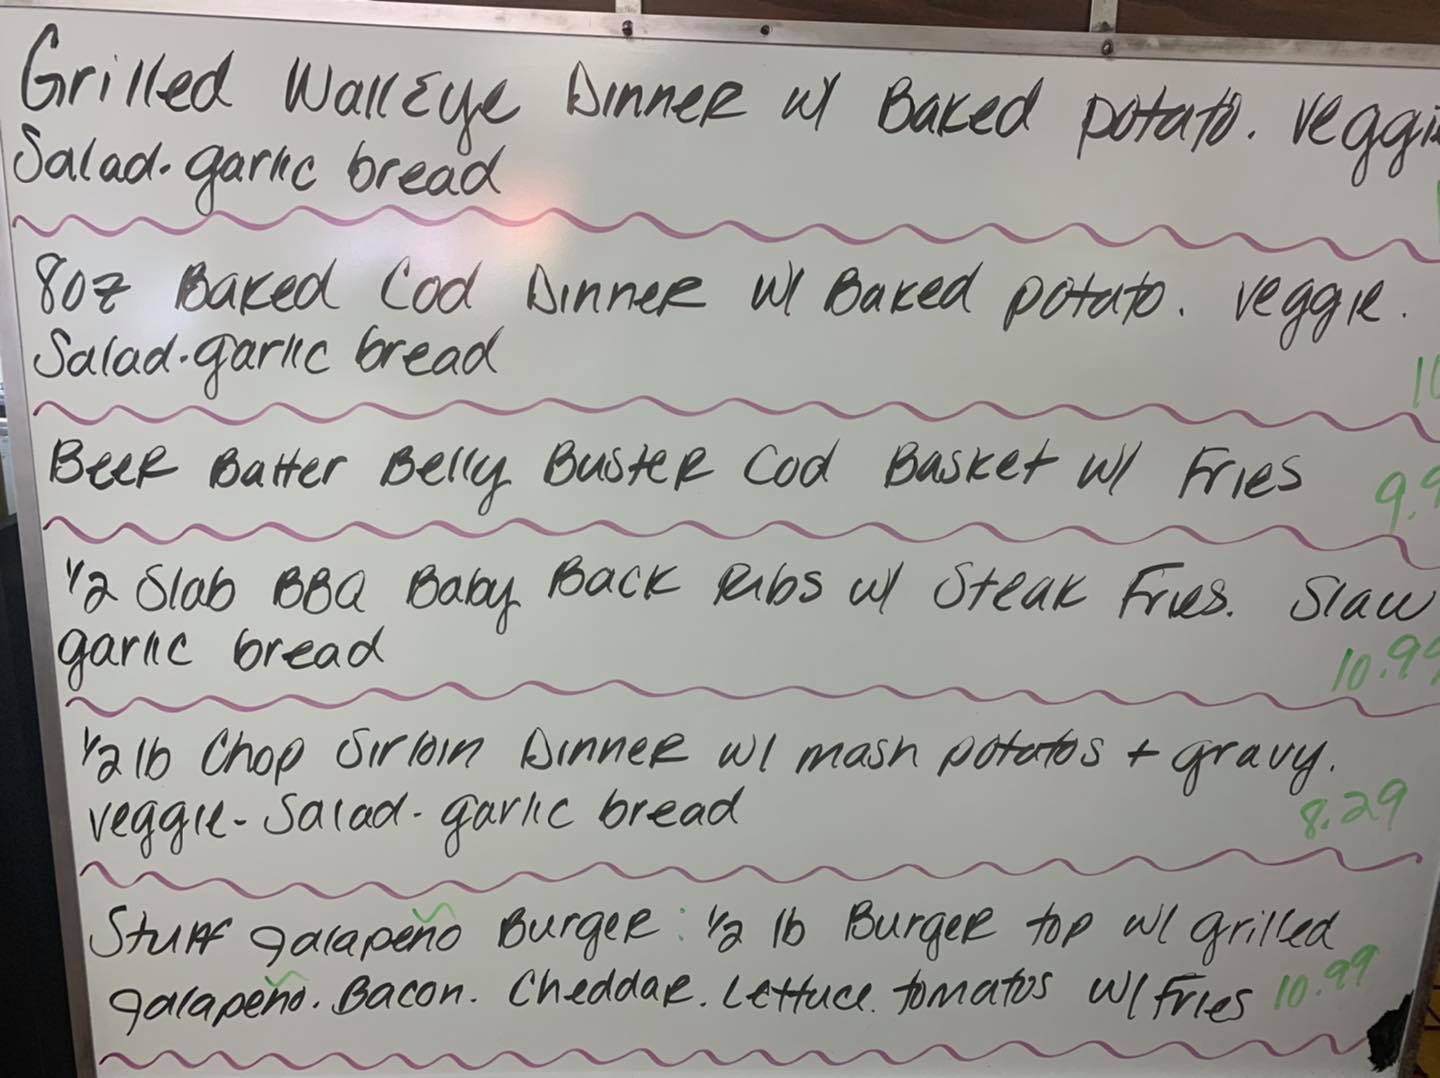 Grilled WallEye Dinner w/ Baked potato. veggie
Salad. garlic bread
8oz Baked Cod Dinner w/ Baked potato. veggie.
Salad. garlic bread
10
Beer Batter Belly Buster Cod Basket w/ Fries 9.9
1/2 Slab BBQ Baby Back Ribs w/ Steak Fries. Slaw
garlic bread 10.99
1/2 lb Chop Sirloin Dinner w/ mash potatos + gravy.
veggie - Salad - garlic bread 8.29
Stuff jalapeño Burger: 1/2 lb Burger top w/ grilled
jalapeño. Bacon. Cheddar. Lettuce. tomatos w/ Fries 10.99